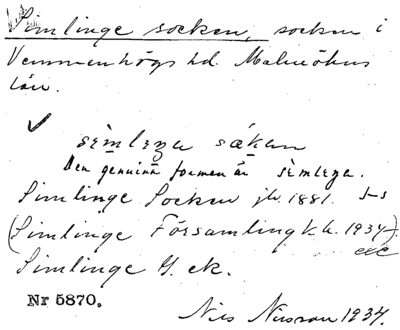 Simlinge socken, socken i
Vemmenhögs hd. Malmöhus
län.
✓ sèmleŋa sǻkan
Den genuina formen är sèmleŋa.
Simlinge Socken jb. 1881. J-s
(Simlinge Församling k.b. 1934)
etc
Simlinge G. ek.
Nr 5870.
Nils Nilsson 1934.